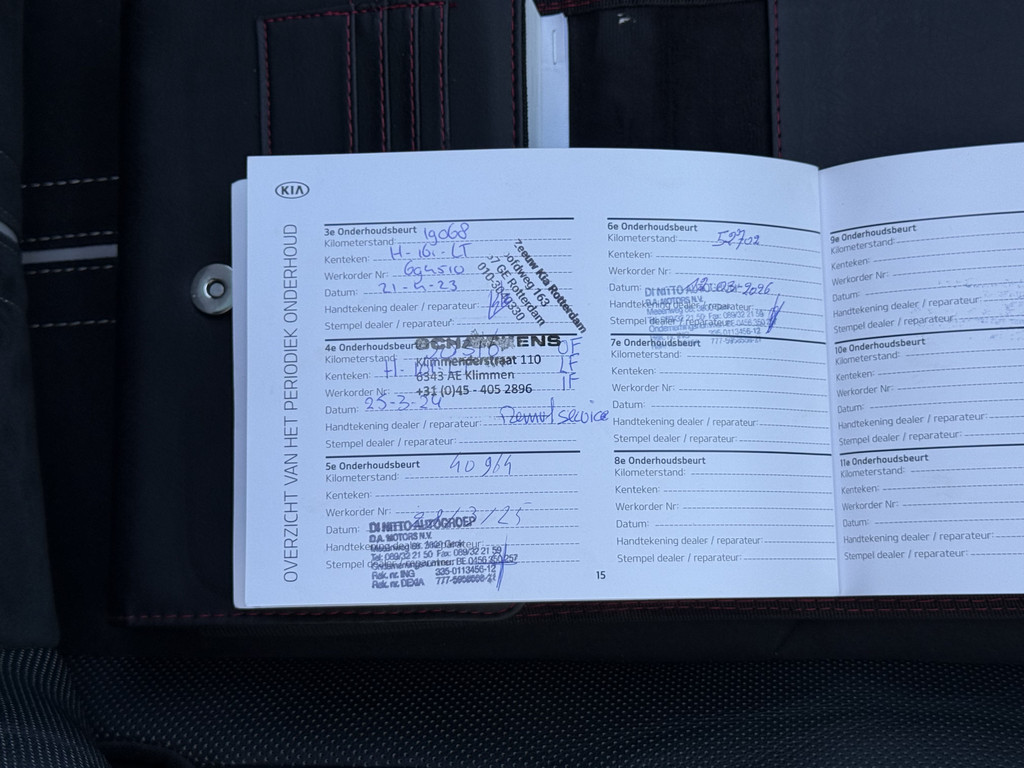 KIA
OVERZICHT VAN HET PERIODIEK ONDERHOUD
3e Onderhoudsbeurt
Kilometerstand: 19068
Kenteken: H-161-LT
Werkorder Nr: 694510
Datum: 21-5-23
Handtekening dealer / reparateur:
Stempel dealer / reparateur:
Zeeuw Kia Rotterdam
163
GE Rotterdam
4e Onderhoudsbeurt
Kilometerstand
Kenteken: H-
Werkorder Nr:
Datum: 25-3-24
Handtekening dealer / reparateur:
Stempel dealer / reparateur:
Klimmenderstraat 110
6343 AE Klimmen
+31 (0)45 - 405 2896
OF
LF
IF
service
5e Onderhoudsbeurt 40964
Kilometerstand:
Kenteken:
Werkorder Nr:
Datum: /3/25
DI NITTO AUTOGROEP
D.A. MOTORS N.V.
Tel: 089/32 21 50 Fax: 089/32 21 59
Rek. nr. ING 335-0113456-12
Rek. nr. DEXIA
15
6e Onderhoudsbeurt
Kilometerstand: 52702
Kenteken:
Werkorder Nr:
Datum: 03-2026
Handtekening dealer / reparateur:
Stempel dealer / reparateur:
DI NITTO
D.A. MOTORS N.V.
335-0113456-12
7e Onderhoudsbeurt
Kilometerstand:
Kenteken:
Werkorder Nr:
Datum:
Handtekening dealer / reparateur:
Stempel dealer / reparateur:
8e Onderhoudsbeurt
Kilometerstand:
Kenteken:
Werkorder Nr:
Datum:
Handtekening dealer / reparateur:
Stempel dealer / reparateur:
9e Onderhoudsbeurt
Kilometerstand:
Kenteken:
Werkorder Nr:
Datum:
Handtekening dealer / reparateur:
Stempel dealer / reparateur:
10e Onderhoudsbeurt
Kilometerstand:
Kenteken:
Werkorder Nr:
Datum:
Handtekening dealer / reparateur:
Stempel dealer / reparateur:
11e Onderhoudsbeurt
Kilometerstand:
Kenteken:
Werkorder Nr:
Datum:
Handtekening dealer / reparateur:
Stempel dealer / reparateur: